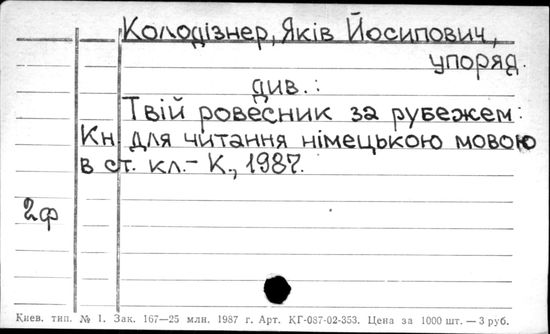 Колодізнер, Яків Йосипович,
упоряд.
див.:
Твій ровесник за рубежем:
Кн. для читання німецькою мовою
в ст. кл.- К., 1987.
2ф
Киев. тип. № 1. Зак. 167—25 млн. 1987 г. Арт. КГ-087-02-353. Цена за 1000 шт. — 3 руб.